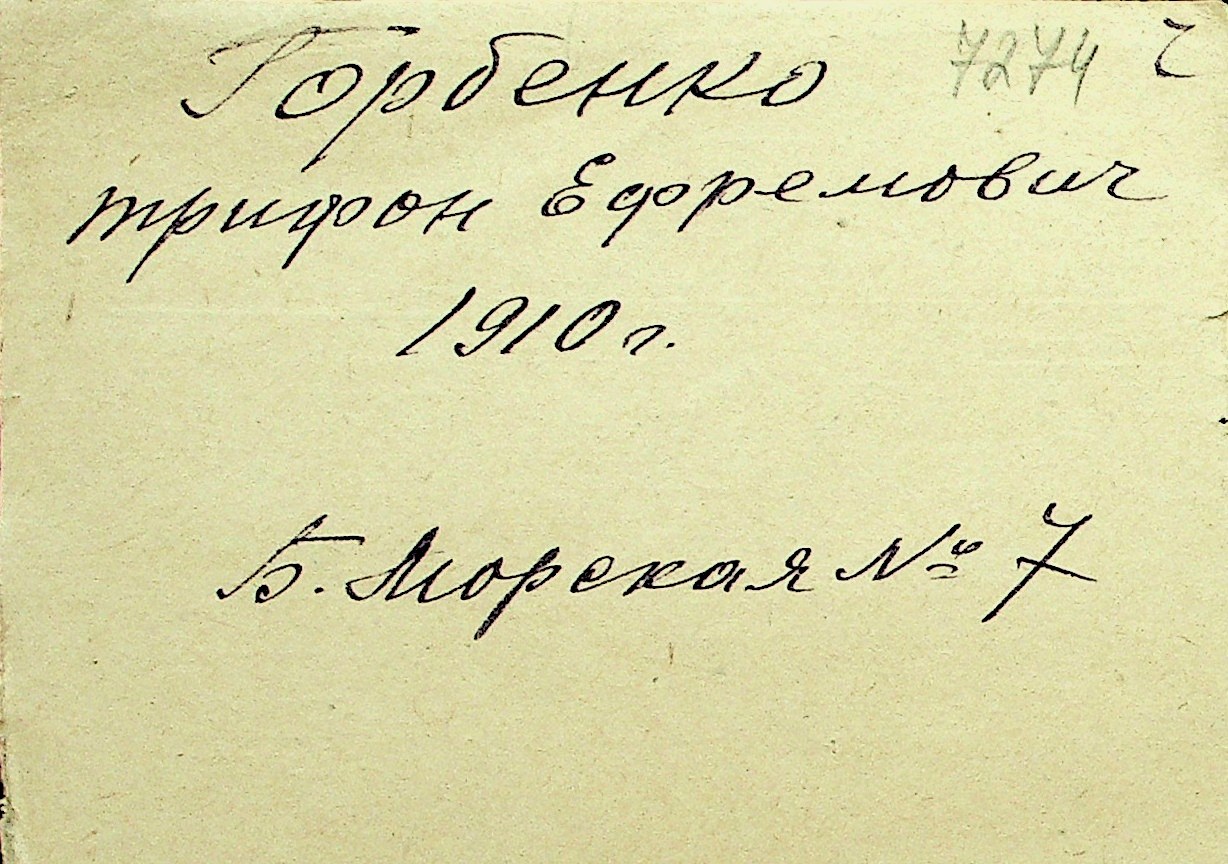 Горбенко 7274 ч
трифон Ефремович
1910 г.
Б. Морская № 7